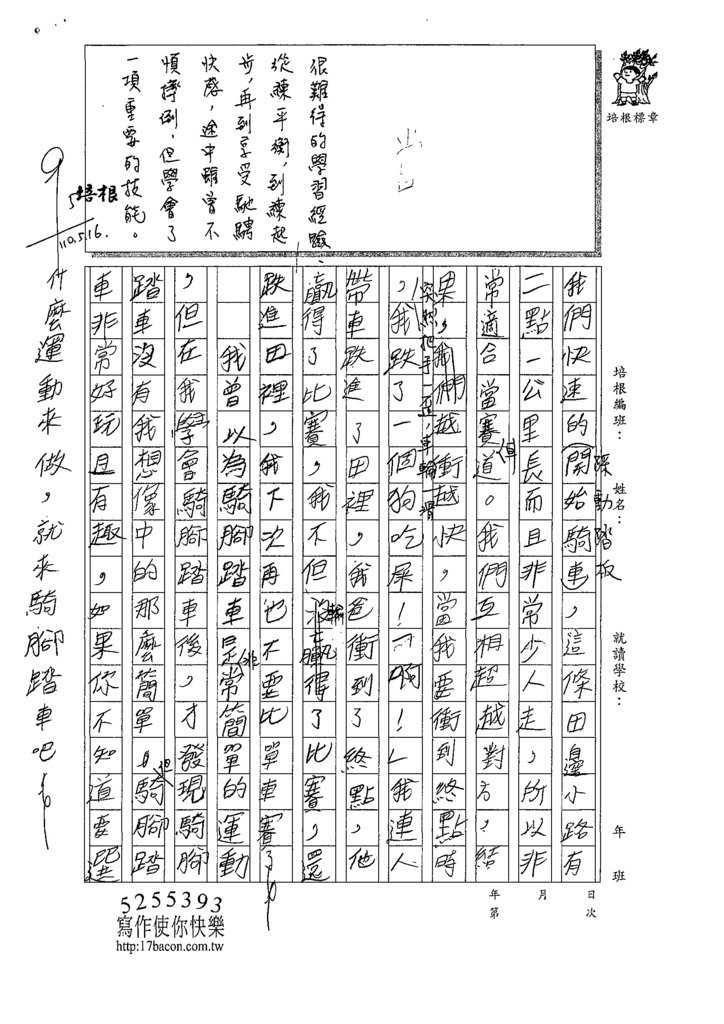 培根標章
很難得的學習經驗，
從練平衡，到練起
步，再到享受馳騁
快感，途中雖曾不
慎摔倒，但學會了
一項重要的技能。
培根
110.5.16.
培根編班：
姓名：
就讀學校：
年 班
年 月 日
第 次
我們快速的開始騎車，這條田邊小路有
踩動踏板
二點一公里長而且非常少人走，所以非
常適合當賽道。我們互相超越對方，結
但
果，我們越衝越快，當我要衝到終點時
突然把手一歪，車輪一滑
，我跌了一個狗吃屎！「啊！」我連人
帶車跌進了田裡，我爸衝到了終點，他
贏得了比賽，我不但沒贏得了比賽，還
輸
跌進田裡，我下次再也不要比單車賽了
我曾以為騎腳踏車是常簡單的運動
非
，但在我學會騎腳踏車後，才發現騎腳
踏車沒有我想像中的那麼簡單，且騎腳踏
但
車非常好玩且有趣，如果你不知道要選
什麼運動來做，就來騎腳踏車吧
5255393
寫作使你快樂
http:17bacon.com.tw